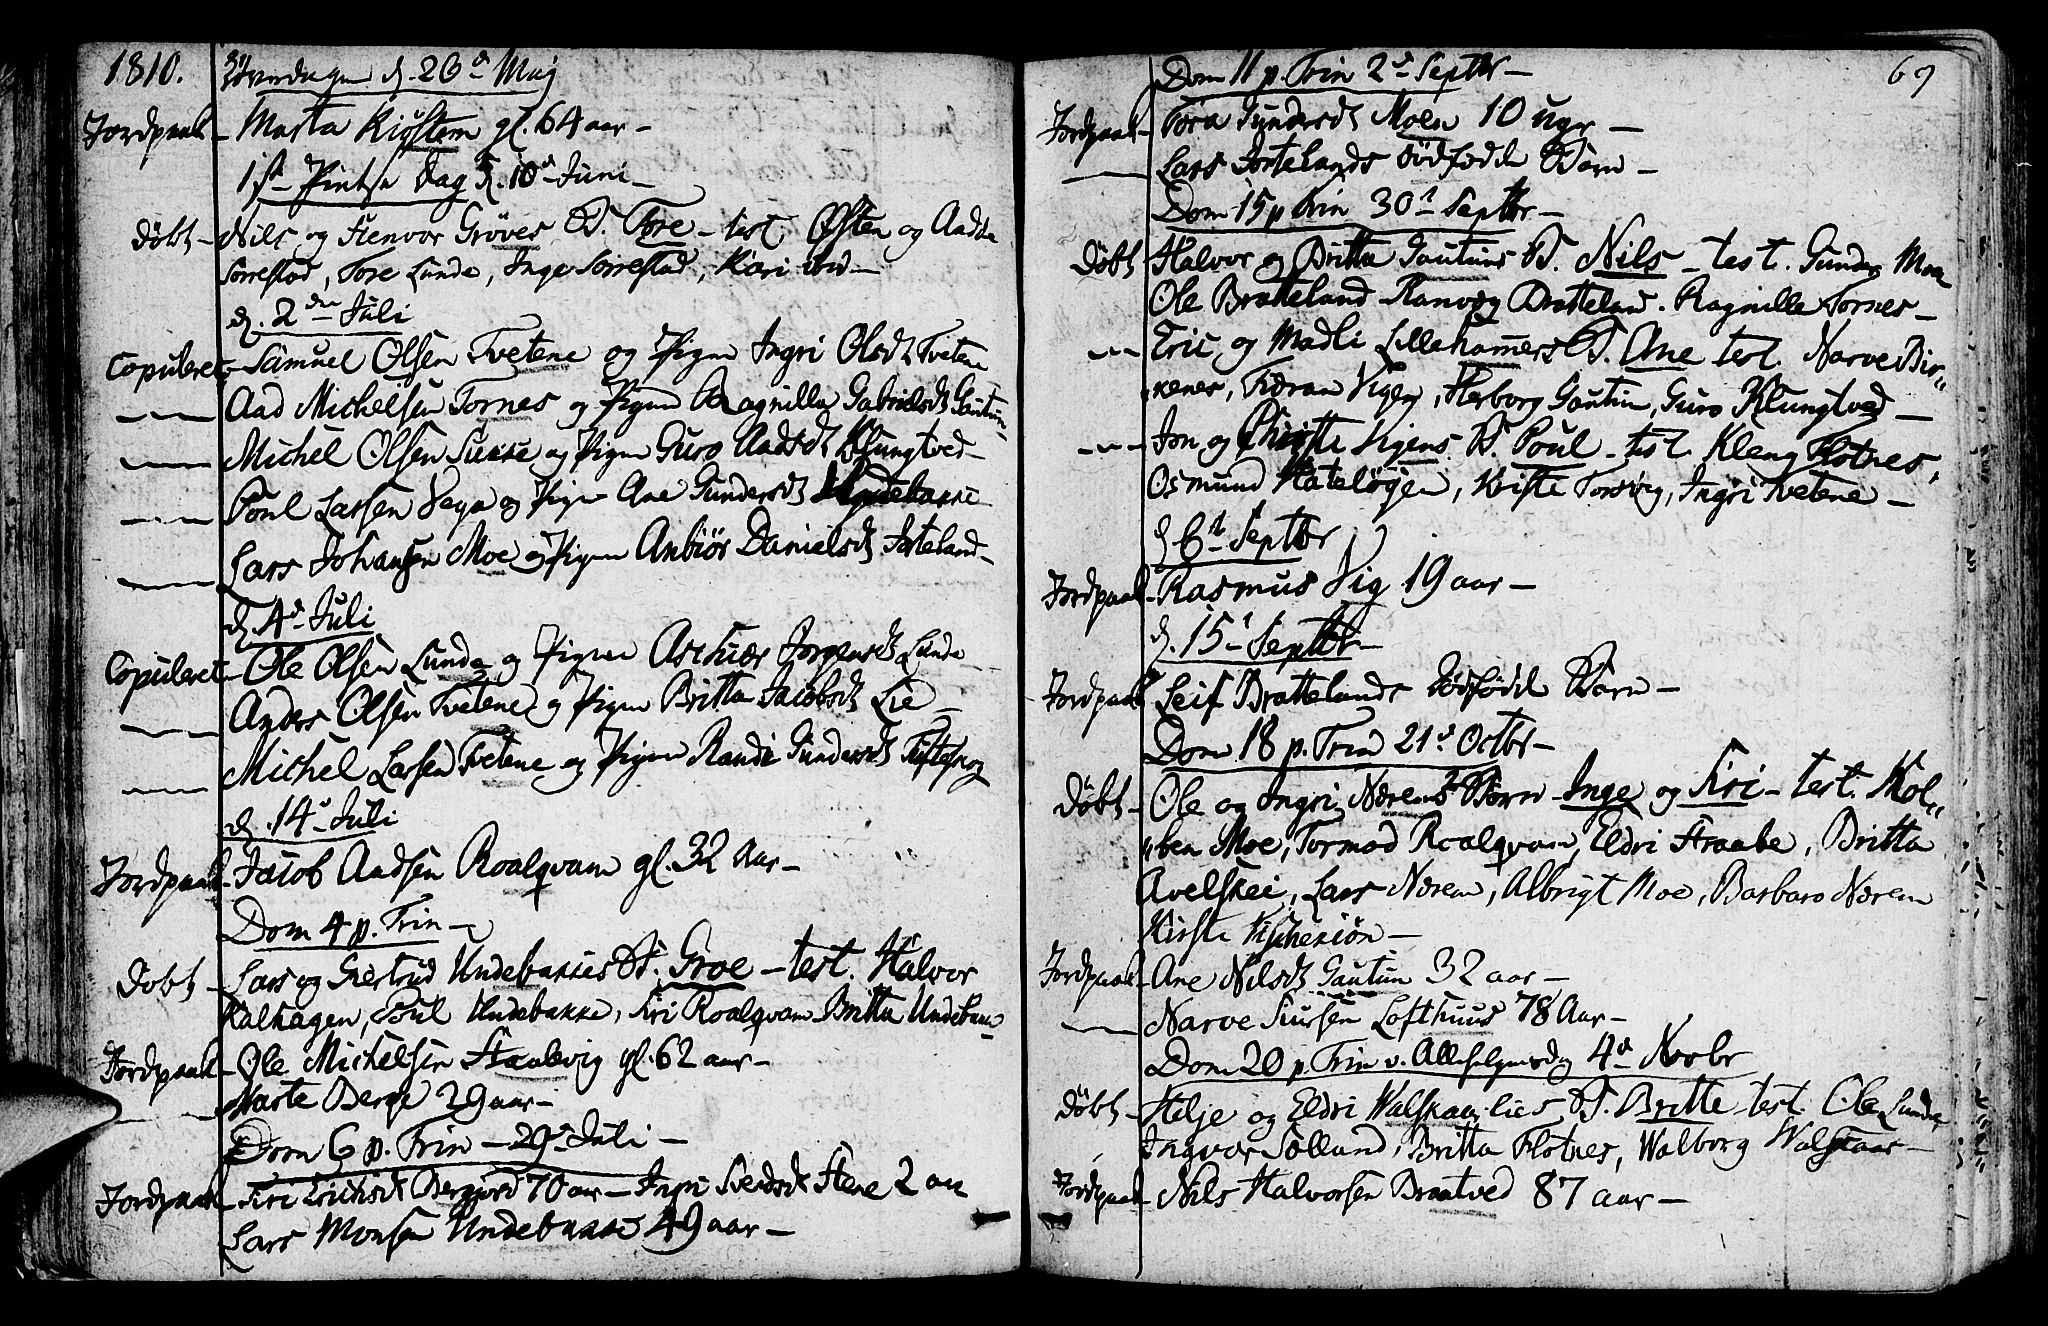 1810. Løverdagen d. 26d Maj
Jordpaak- Marta Kiosteru gl. 64 aar -
1st Pintse Dag d. 10d Juni -
Døbt - Nils og Stenvor Grøves B. Tore - test. Østen og Aadda
Sørrestad, Tore Lunde, Inge Sørrestad, Kari ibid -
d. 2den Juli
Copuleret - Samuel Olsen Tvetene og Pigen Ingri Olsdt Tvetene
Aad Michelsen Tornes og Pigen Ragnilla Gabrielsdt Gautun-
Michel Olsen og Pigen Guro Aadsdt Klungtved -
Poul Larsen og Pigen Ane Gundersdt
Lars Johansen Moe og Pigen Anbiør Danielsdt Jorteland -
d. 4d Juli
Copuleret - Ole Olsen Lunde og Pigen Jorgensdt Lunde
Anders Olsen Tvetene og Pigen Britta Jacobsdt Lie -
Michel Larsen Tvetene og Pigen Randi Gundersdt Tiftesog
d. 14d Juli
Jordpaak - Jacob Aadsen Roalqvam gl. 32 Aar -
Dom 4 p. Trin -
Døbt - Lars og Giertrud Undebakkes B. Groe - test. Halvor
Kalhagen, Poul Undebakke, Siri Roalqvam Britta Undebak-
Jordpaak - Ole Michelsen Staalevig gl. 62 aar -
Marte Berge 29 aar -
Dom 6 p. Trin - 29d Juli -
Jordpaak - Siri Erichsdt 70 aar - Ingri Stene 2 aar
Lars Monsen Undebakke 49 aar -
69
Dom 11 p. Trin 2d Septbr -
Jordpaak - Tora Gundersdt Moen 10 uger -
Lars Jortelands dødfødde Barn -
Dom 15 p Trin 30d Septbr -
Døbt Halvor og Britta Gautuns B. Nils - test. Moe
Ole Bratteland Ranveg Bratteland. Ragnille Tornes -
Eric og Madli Lillehamers B. Ane test. Narve Bir"
"kenes, Vigen, Herborg Gautun, Guro Klungtved -
Jon og Christe Vigens B. Poul - test. Kleng Flotnes,
Osmund Hateløgen, Kirste Torsvig, Ingri Tvetene -
d 6d Septbr
Jordpaak - Rasmus Vig 19 aar -
d. 15d Septbr -
Jordpaak Leif Brattelands dødfødde Barn -
Dom 18 p. Trin 21d Octbr -
Døbt - Ole og Ingri Nærems 2 Børn - Inge og Siri - test. Kol"
"ben Moe, Tormod Roalqvam, Eldri Straabe, Britta
Avelskei, Lars Nærem, Albrigt Moe, Barbaro Nærem
Kirste
Jordpaak - Ane Nilsdt Gautun 32 aar -
Narve Siursen Lofthuus 78 Aar -
Dom 20 p. Trin v. Allehelgensdag 4d Novbr
Døbt - Helje og Eldri B. Britte test. Ole Lunde,
Ingvor Sølland, Britta Flotnes, Walborg Walskaar -
Jordpaak - Nils Halvorsen Braatved 87 aar -